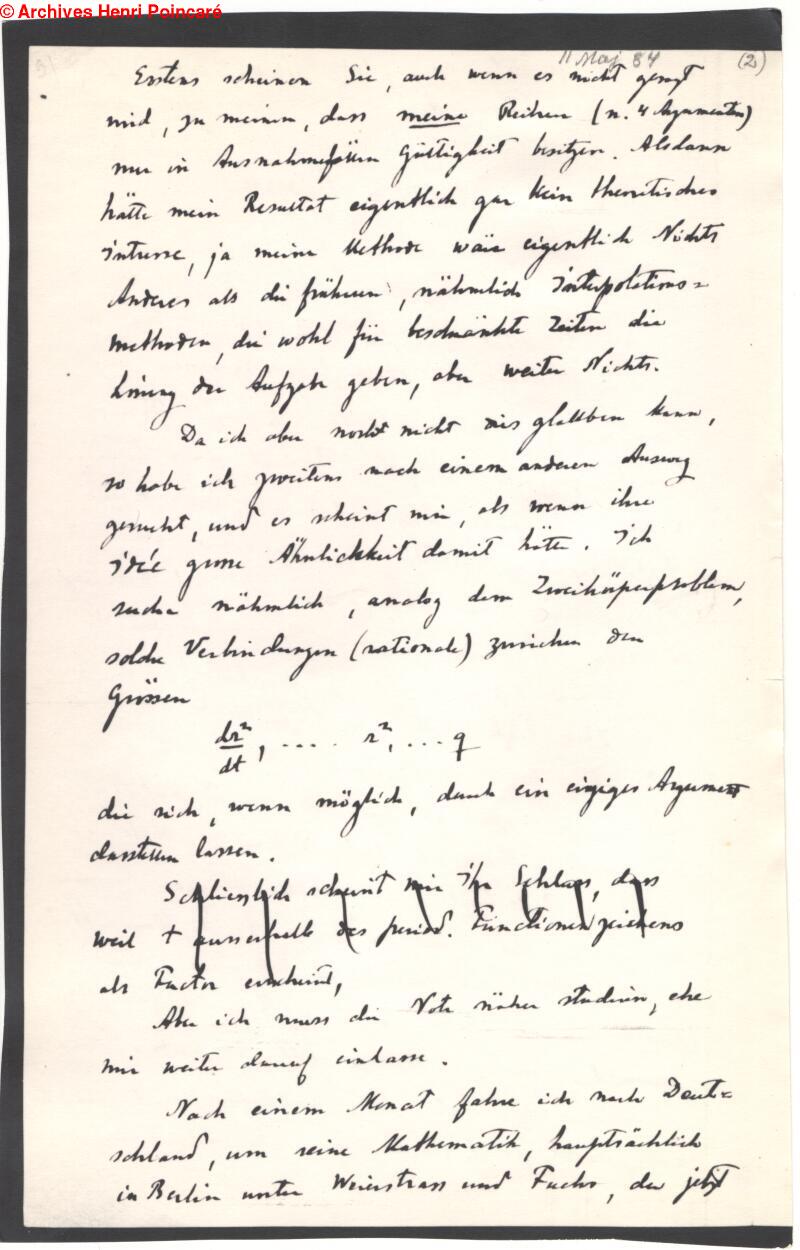 © Archives Henri Poincaré
11 Maj 84 (2)
Erstens scheinen Sie, auch wenn es nicht gesagt
wird, zu meinen, dass meine Reihen (n. 4 Argumenten)
nur in Ausnahmefällen Gültigkeit besitzen. Alsdann
hätte mein Resultat eigentlich gar kein theoretisches
Intresse, ja meine Methode wäre eigentlich Nichts
Anderes als die früheren, nähmlich Interpolations=
methoden, die wohl für beschränkte Zeiten die
Lösung der Aufgabe geben, aber weiter Nichts.
Da ich aber noch nicht dies glauben kann,
so habe ich zweitens nach einem anderen Ausweg
gesucht, und es scheint mir, als wenn ihre
idée gewisse Ähnlichkeit damit hätte. Ich
suche nähmlich, analog dem Zweikörperproblem,
solche Verbindungen (rationale) zwischen den
Grössen
dr²/dt, .... r², ... q
die sich, wenn möglich, durch ein einziges Argument
darstellen lassen.
Schliesslich scheint mir Ihr Schluss, dass
weil t ausserhalb des period. Functionenzeichens
als Factor erscheint,
Aber ich muss die Note näher studiren, ehe
mir weiter darauf einlasse.
Nach einem Monat fahre ich nach Deut=
schland, um reine Mathematik, hauptsächlich
in Berlin unter Weierstrass und Fuchs, der jetzt